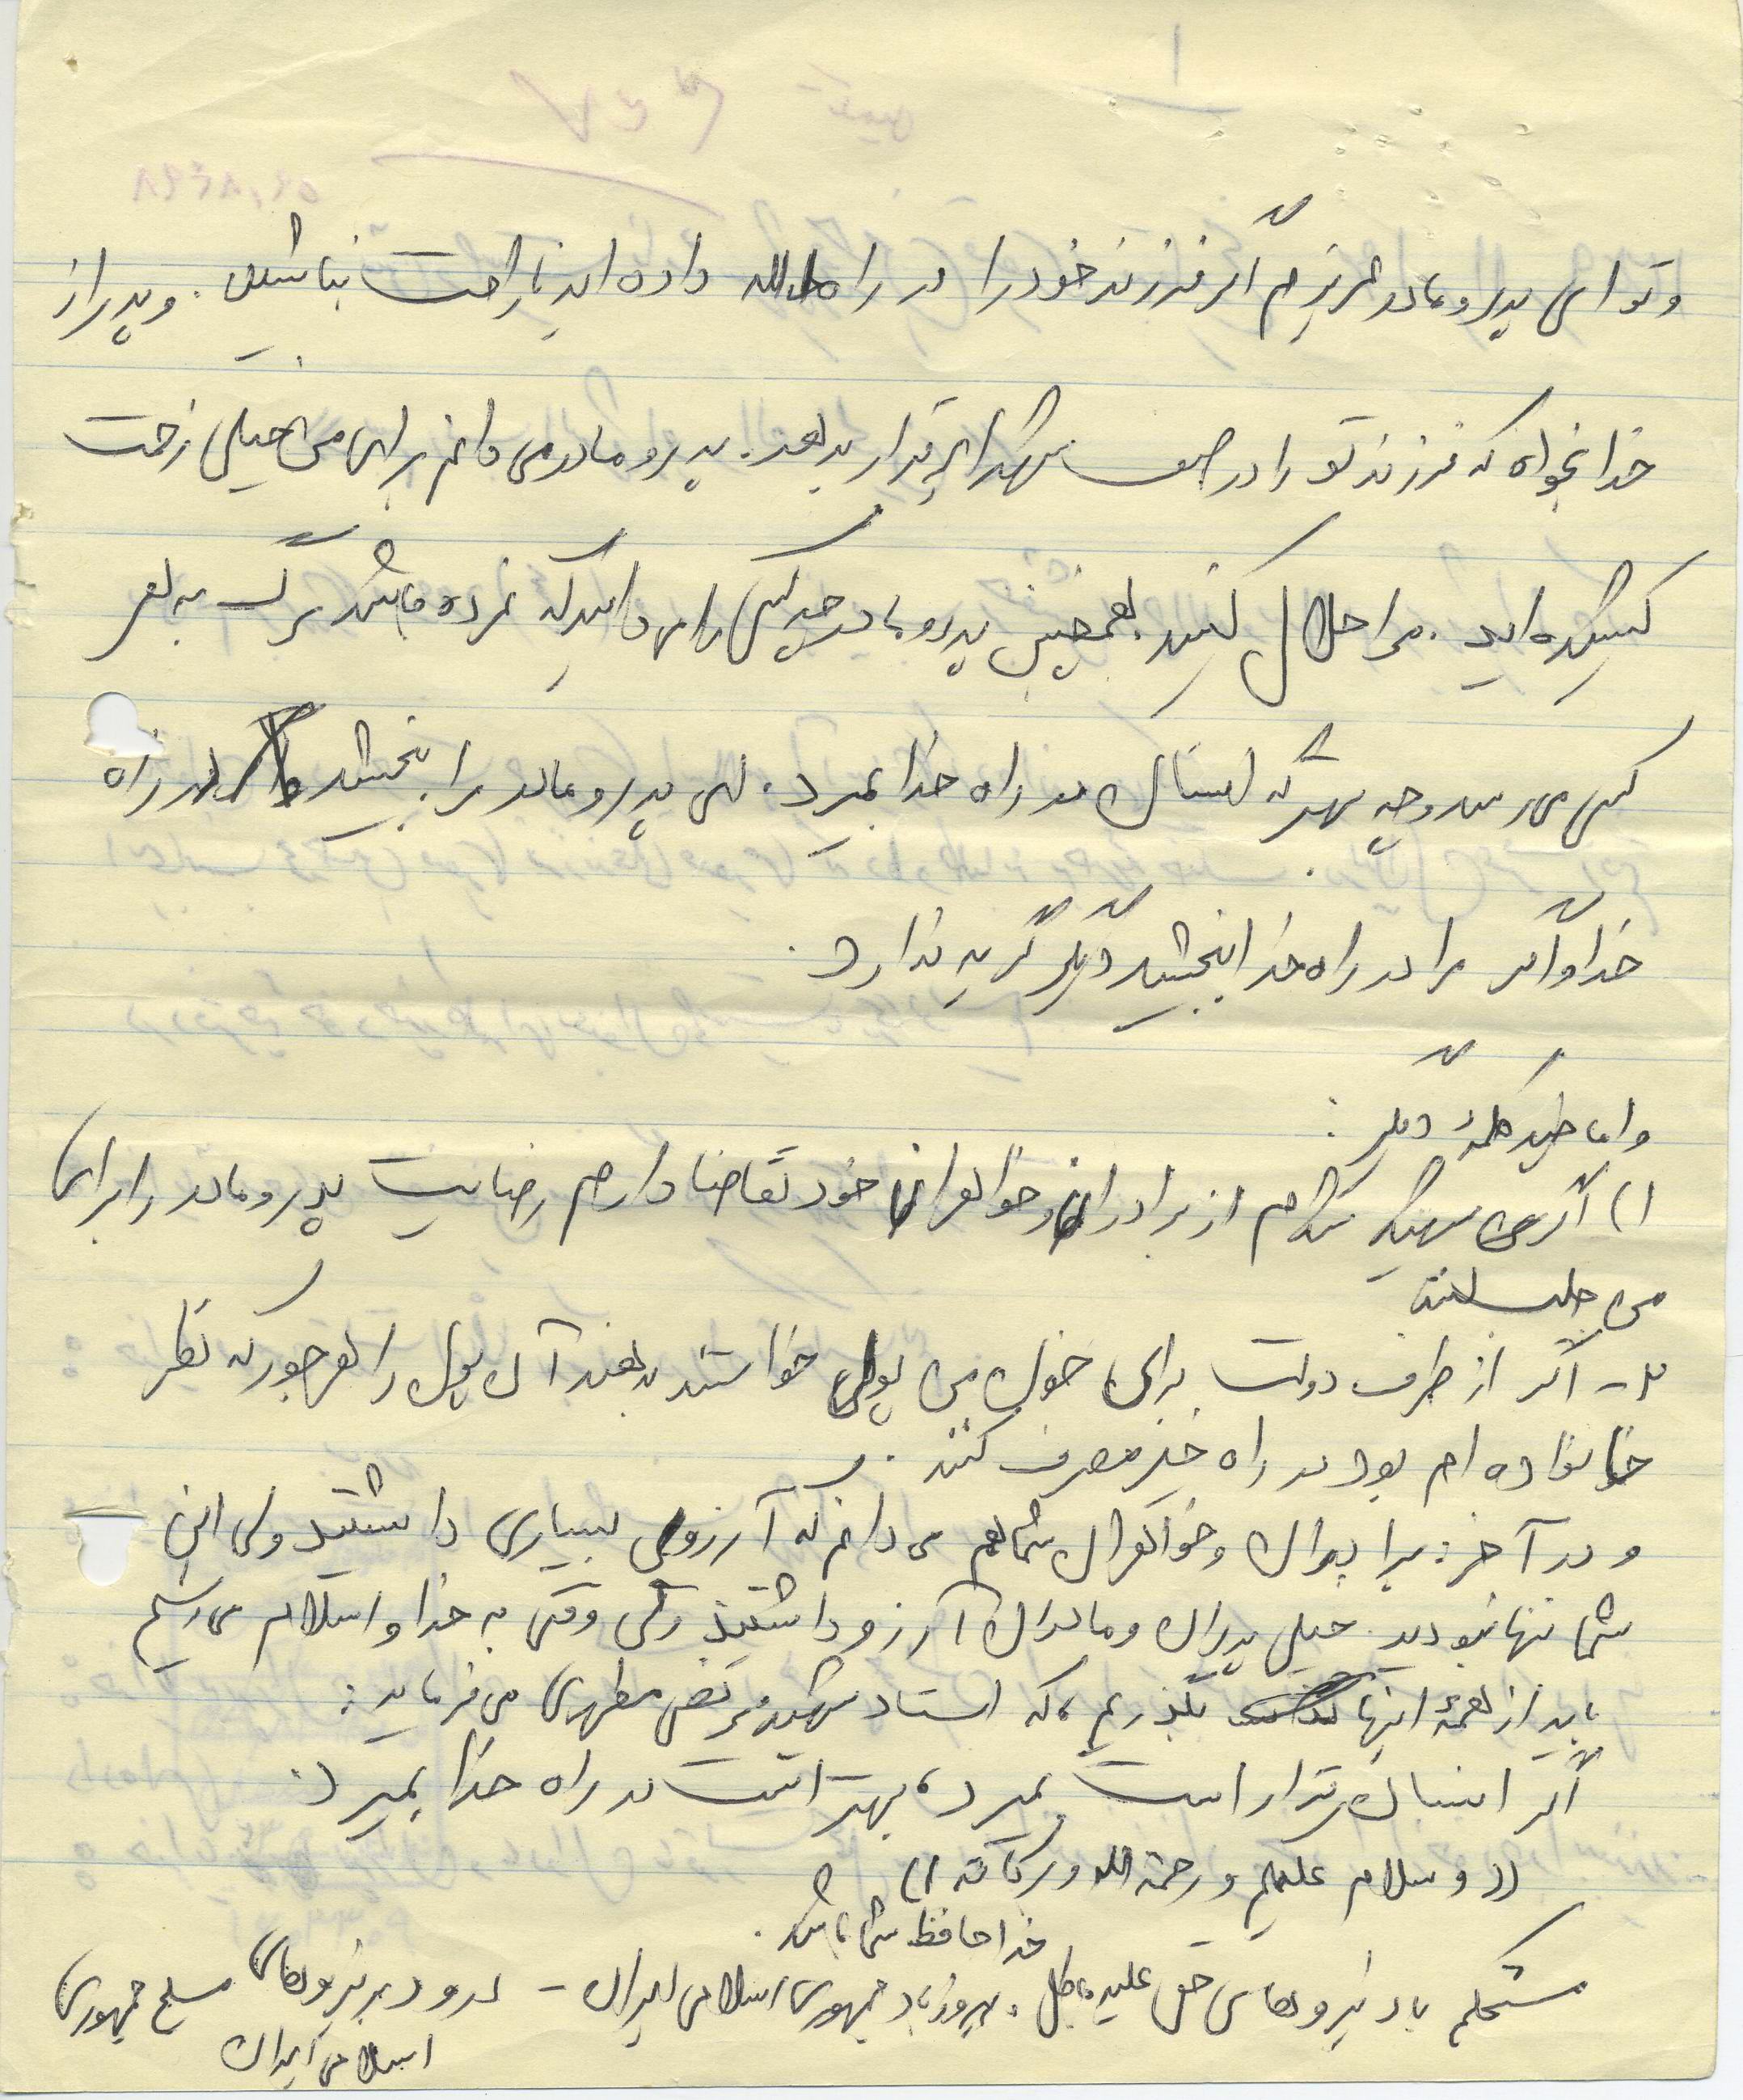 ۱
و تو ای پدر و مادر عزیزم اگر فرزند خود را در راه الله داده اید ناراحت نباشید. و پدر از
خدا بخواه که فرزند تو را در صف شهدا قرار بدهد. پدر و مادر می دانم برای من خیلی زحمت
کشیده اید. مرا حلال کنید همچنین پدر و مادر چه کسی را می دانید که نمرده باشد مرگ به هر
کس می رسد و چه بهتر که انسان در راه خدا بمیرد. ای پدر و مادر مرا ببخشید در راه
خدا و اگر مرا در راه خدا ببخشید دیگر گریه ندارد.
و اما چند کلمهٔ دیگر:
۱) اگر من شهید شدم از برادران و خواهران خود تقاضا دارم رضایت پدر و مادر را برای
من جلب کنند
۲- اگر از طرف دولت برای خون من پولی خواستند بدهند آن پول را هر جور که نظر
خانواده ام بود در راه خیر مصرف کنند.
و در آخر: برادران و خواهران شما هم می دانم که آرزوی بسیاری داشتید ولی این
شما تنها نبودید. خیلی پدران و مادران آرزو داشتند ولی وقتی به خدا و اسلام می رسیم
باید از همهٔ اینها بگذریم، که استاد شهید مرتضی مطهری می فرماید:
اگر انسان قرار است بمیرد، بهتر است در راه خدا بمیرد.
((و سلام علیکم و رحمة الله و برکاته))
خدا حافظ شما باشد.
مستحکم باد نیروهای حق علیه باطل. پیروز باد جمهوری اسلامی ایران - درود بر نیروهای مسلح جمهوری
اسلامی ایران